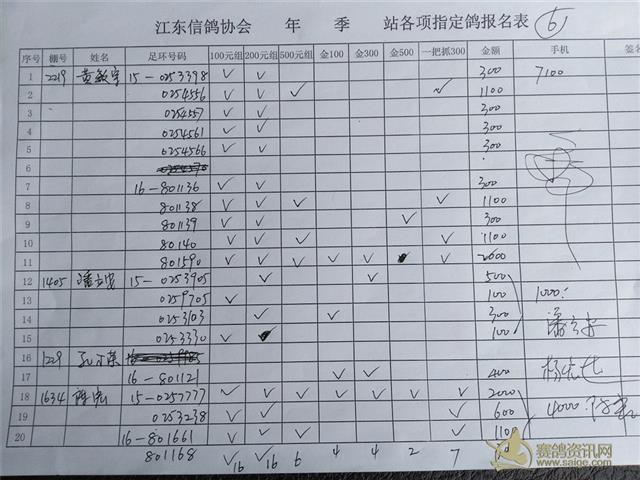 江东信鸽协会 年 季 站各项指定鸽报名表 6
序号 棚号 姓名 足环号码 100元组 200元组 金100 金300 金500 一把抓300 金额 手机 签名
1 2219 15-0253398 ✓ ✓ 300 7100
2 0254556 ✓ ✓ ✓ ✓ 1100
3 0254557 ✓ ✓ 300
4 0254561 ✓ ✓ 300
5 0254566 ✓ ✓ 300
6
7 16-801136 ✓ ✓ 300
8 801138 ✓ ✓ ✓ ✓ 1100
9 801139 ✓ ✓ ✓ 300
10 80140 ✓ ✓ ✓ ✓ 1100
11 801590 ✓ ✓ ✓ ✓ ✓ ✓ 2600
12 1405 15-0253905 ✓ ✓ 500
13 0259705 ✓ 100 1000
14 0253103 ✓ ✓ 300
15 0253330 ✓ 100
16 1229
17 16-801121 ✓ ✓ 400
18 1634 15-0257777 ✓ ✓ ✓ ✓ ✓ ✓ ✓ 2000
19 0253238 ✓ ✓ ✓ 600 4000
20 16-801661 ✓ ✓ ✓ ✓ 1100
801168 ✓16 ✓16 6 4 4 2 7
赛鸽资讯网
www.saige.com